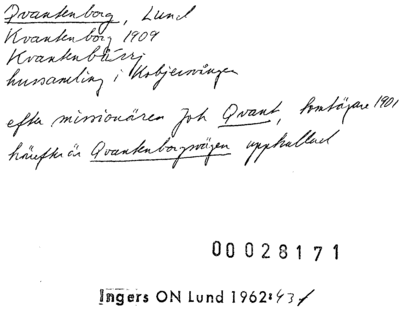 Qvantenborg, Lund
Kvantenborg 1909
Kvantenbårj
hussamling i Kobjersvången
efter missionären Joh Qvant, tomtägare 1901
härefter är Qvantenborgsvägen uppkallad
00028171
Ingers ON Lund 1962:43